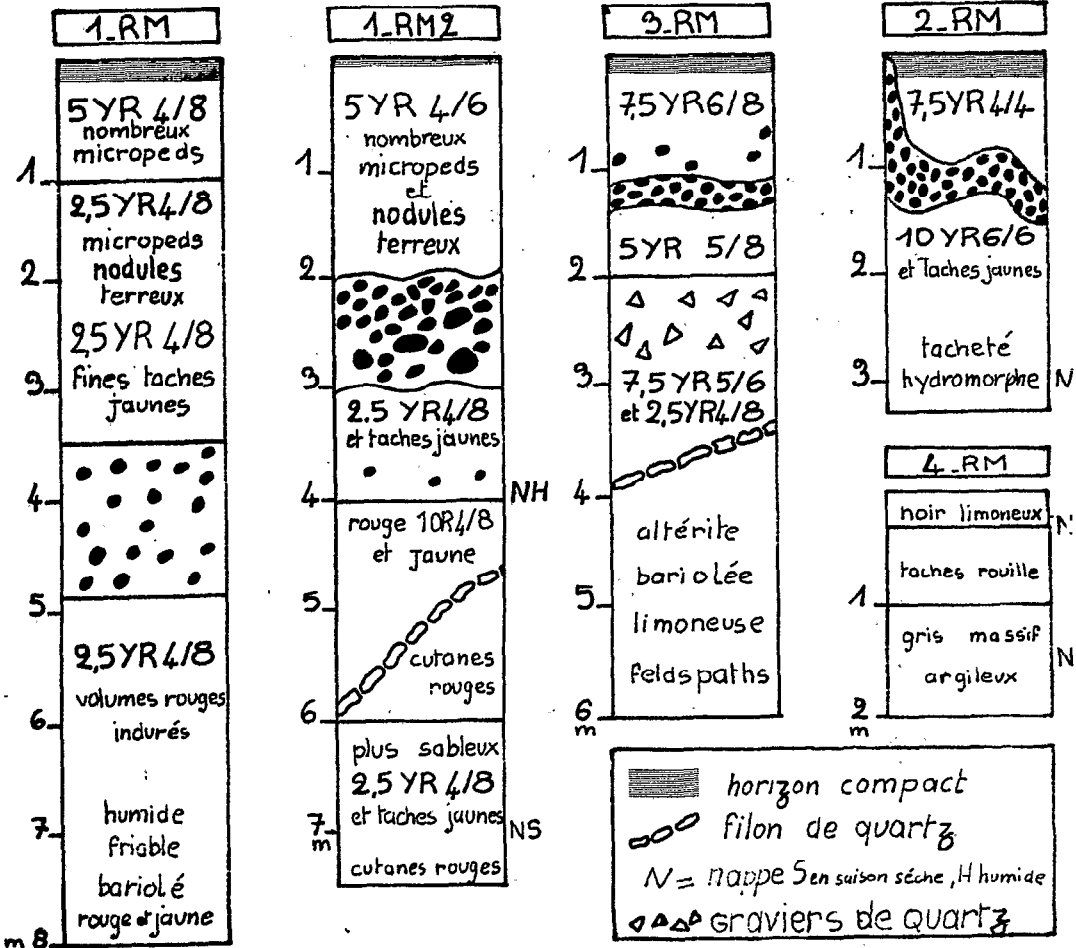 1_RM
5YR 4/8
nombreux
micropeds
1
2,5YR4/8
micropeds
nodules
terreux
2
2,5YR 4/8
fines taches
jaunes
3
4
5
2,5YR4/8
volumes rouges
indurés
6
humide
friable
7
bariolé
rouge et jaune
m 8
1_RM2
5YR 4/6
nombreux
micropeds
et
nodules
terreux
1
2
3
2.5 YR4/8
et taches jaunes
4
NH
rouge 10R4/8
et jaune
5
cutanes
rouges
6
plus sableux
2,5 YR 4/8
et taches jaunes
7
m
NS
cutanes rouges
3_RM
7,5YR6/8
1
5YR 5/8
2
3
7,5YR5/6
et 2,5YR4/8
4
altérite
bariolée
5
limoneuse
feldspaths
6
m
2_RM
7,5YR4/4
1
10YR6/6
2
et Taches jaunes
tacheté
3
hydromorphe
N
4_RM
noir limoneux
N
taches rouille
1
gris massif
argileux
N
2
m
horizon compact
filon de quartz
N = nappe S en suison séche, H humide
Graviers de Quartz